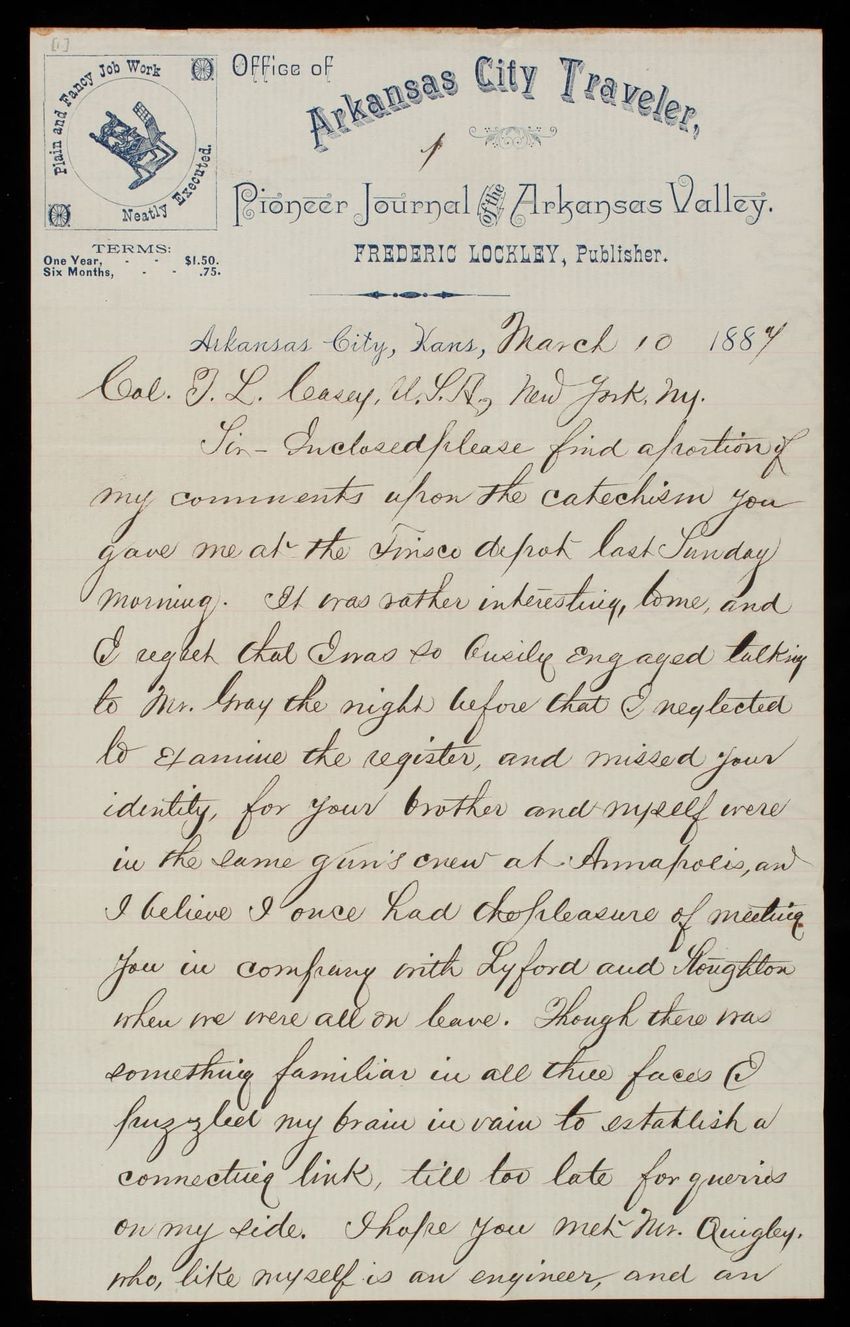 [1]
Plain and Fancy Job Work
Neatly Executed.
Office of
Arkansas City Traveler,
1
Pioneer Journal of the Arkansas Valley.
TERMS:
One Year, - - $1.50.
Six Months, - - .75.
FREDERIC LOCKLEY, Publisher.
Arkansas City, Kans, March 10 1887
Col. T. L. Casey, U.S.A., New York, Ny.
Sir - Inclosed please find a portion of
my comments upon the catechism you
gave me at the Frisco depot last Sunday
morning. It was rather interesting, to me, and
I regret that I was so busily engaged talking
to Mr. Gray the night before that I neglected
to examine the register, and missed your
identity, for your brother and myself were
in the same gun's crew at Annapolis, and
I believe I once had the pleasure of meeting
you in company with Lyford and Stoughton
when we were all on leave. Though there was
something familiar in all three faces I
puzzled my brain in vain to establish a
connecting link, till too late for querries
on my side. I hope you met Mr. Quigley,
who, like myself is an engineer, and an